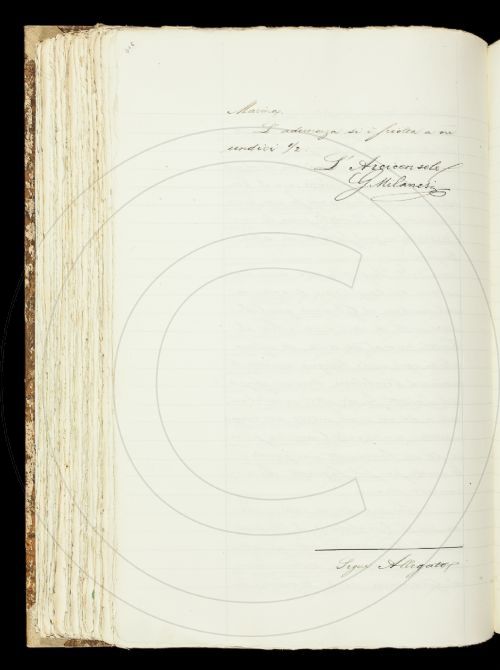 Marina.
L'adunanza si è sciolta a ore
undici 1/2
L'Arciconsole
G. Milanesi
Segue Allegato